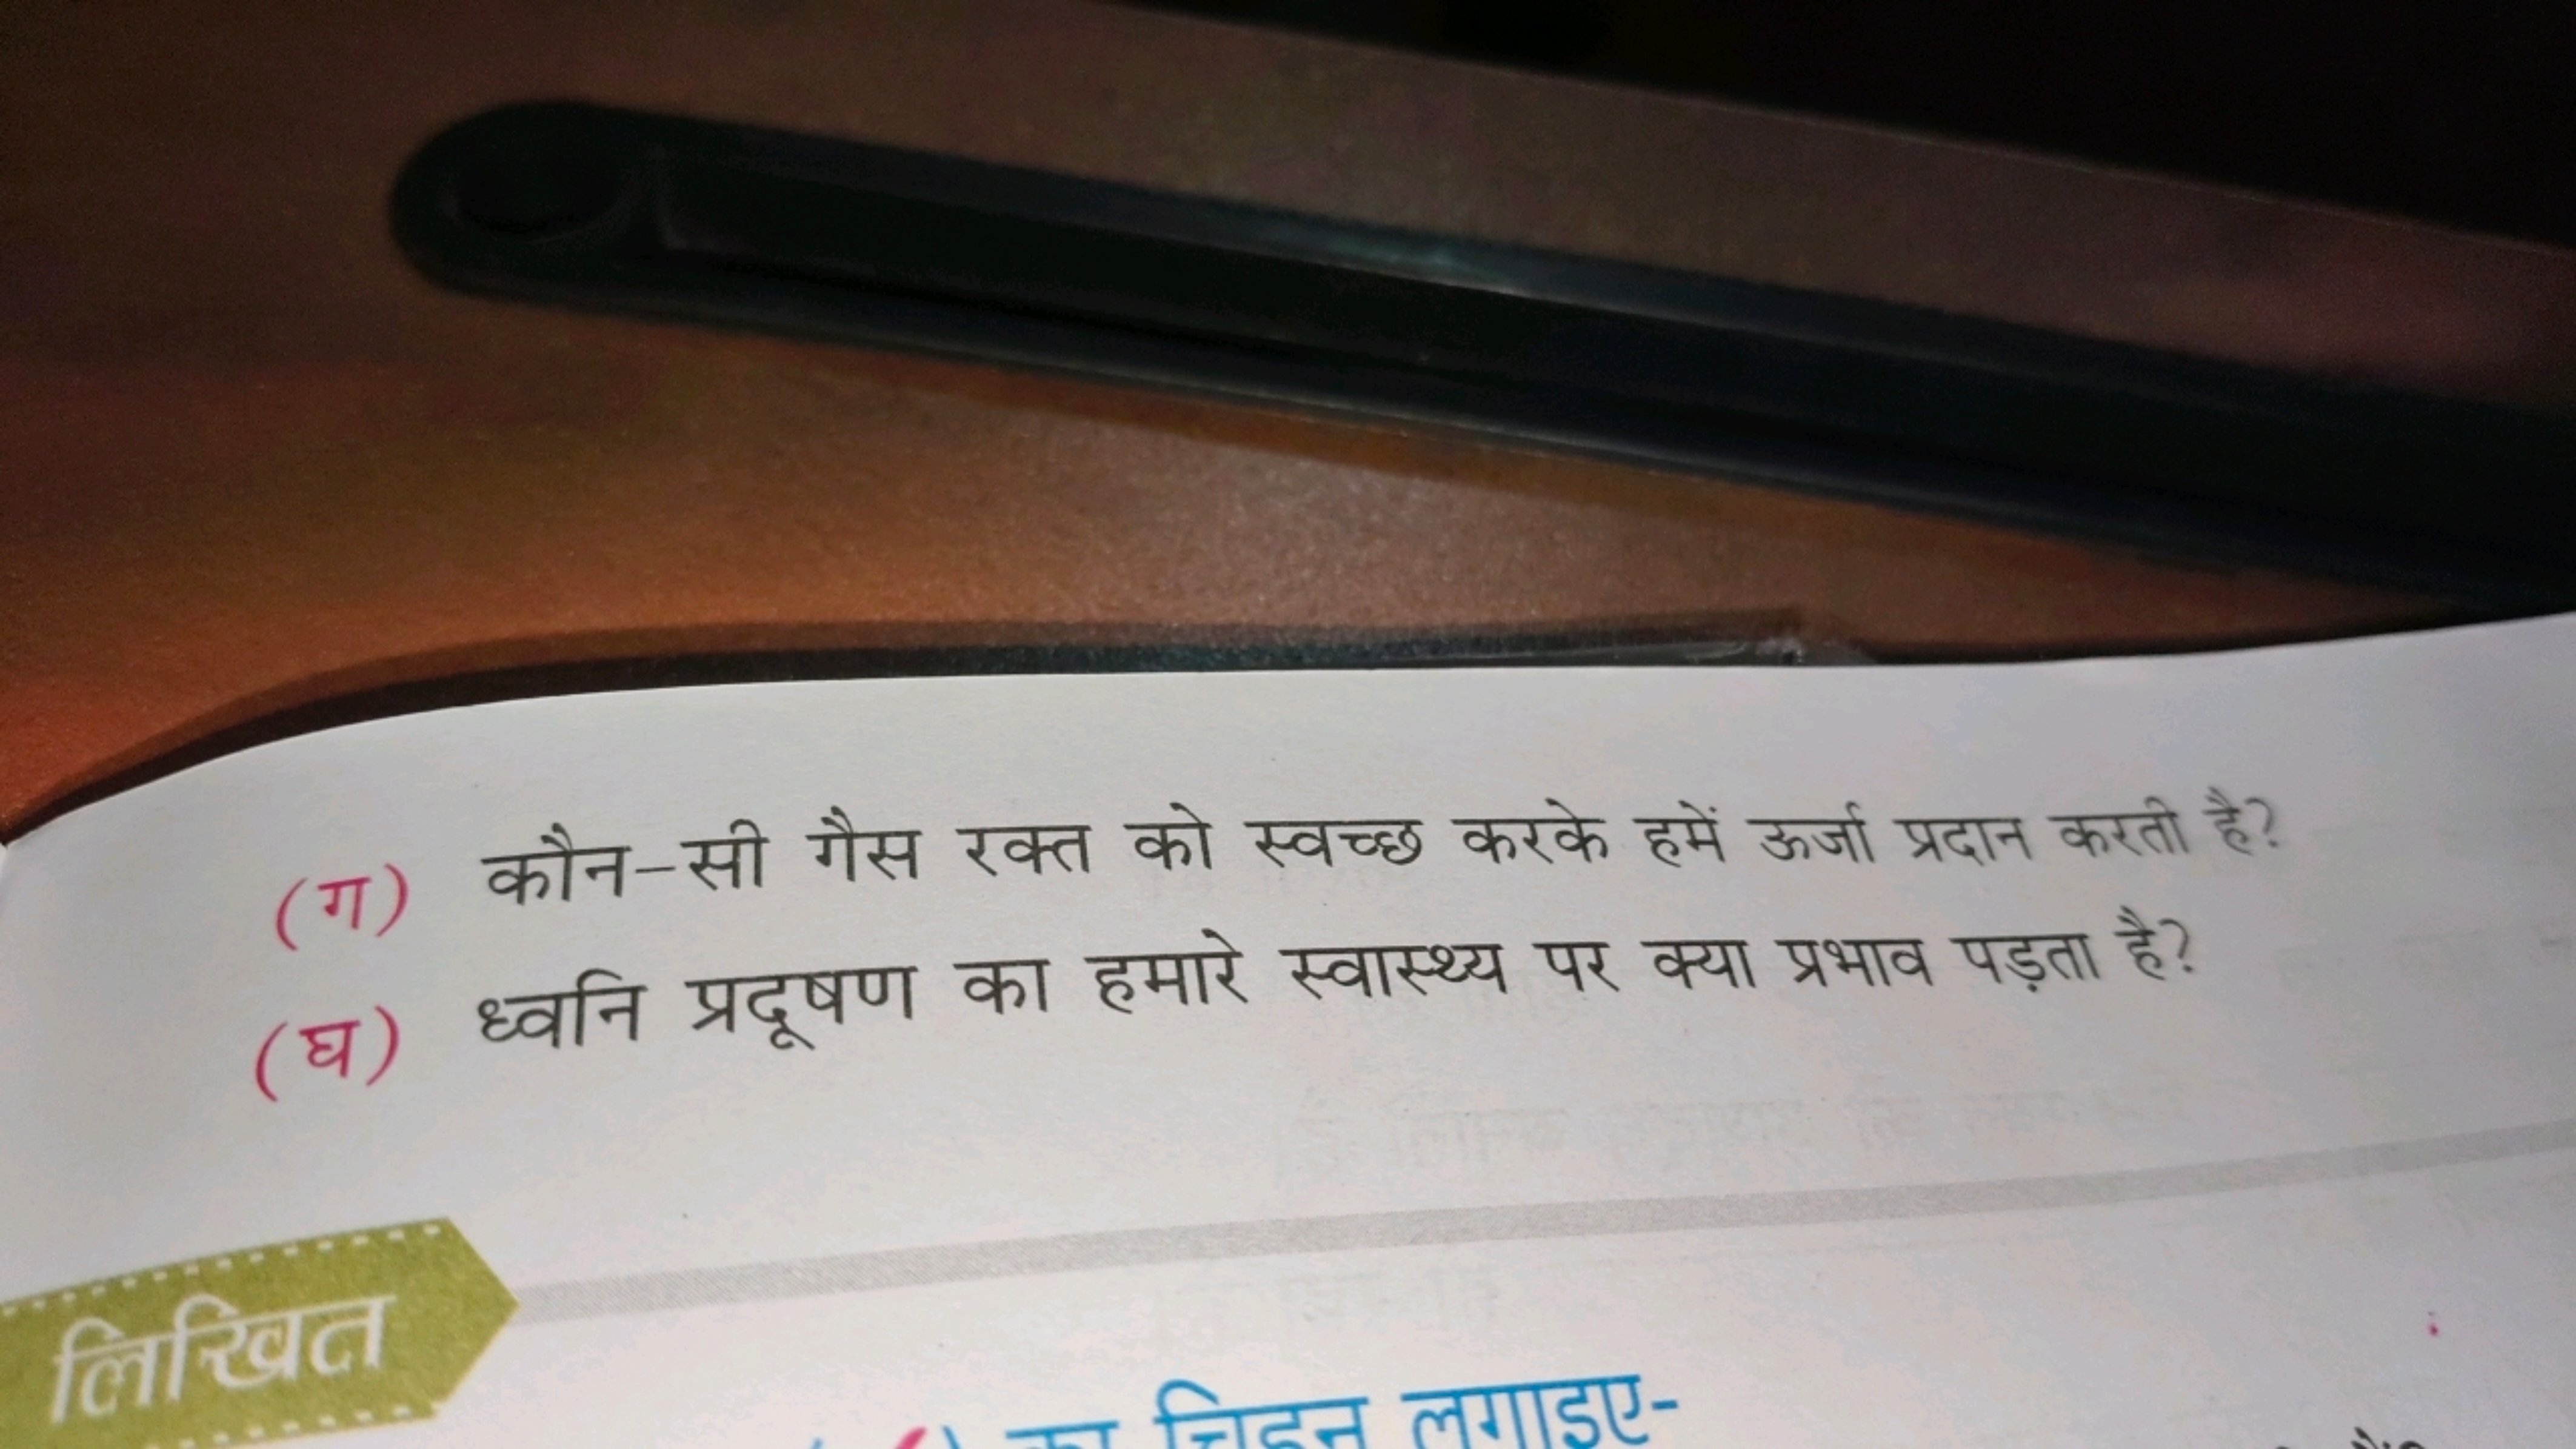 (ग) कौन-सी गैस रक्त को स्वच्छ करके हमें ऊर्जा प्रदान करती है?
(घ) ध्वनि प्रदूषण का हमारे स्वास्थ्य पर क्या प्रभाव पड़ता है?
लिखित
का चिह्न लगाइए-